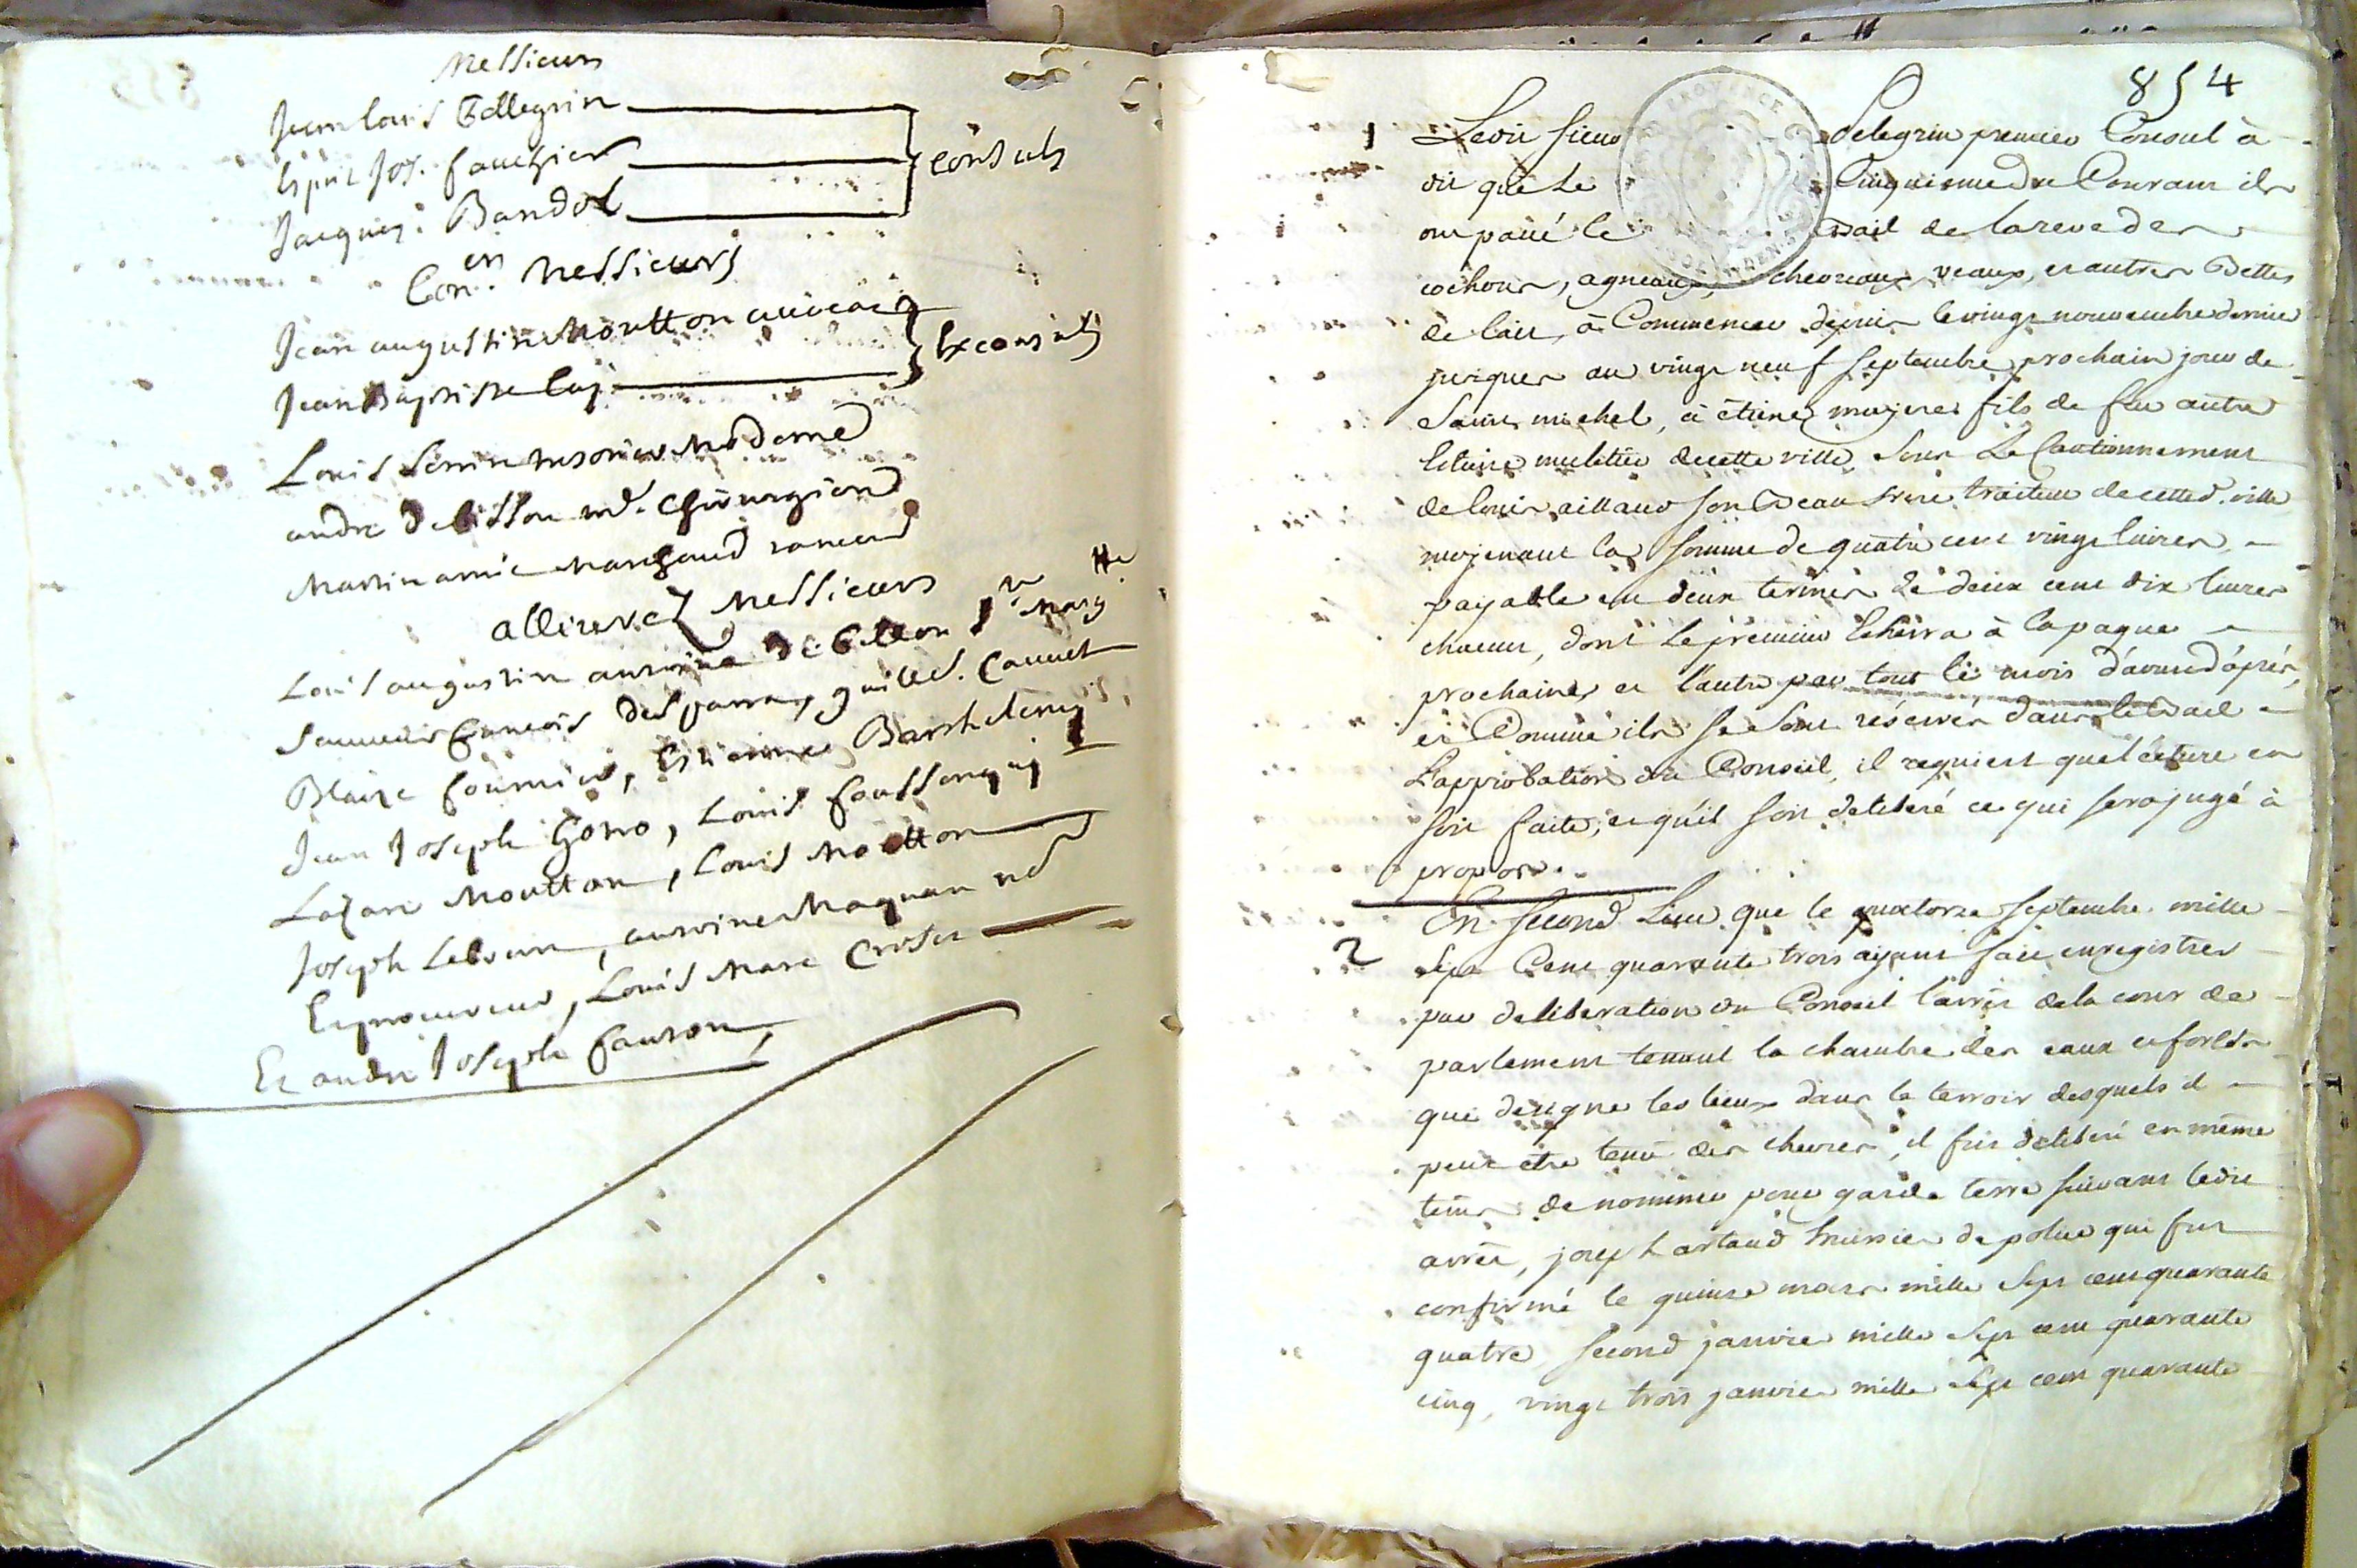 Messieurs
Jean louis Pellegrin
Esprit Jos. fauchier
Jacques Bandol
consuls
Con.ers Messieurs
Jean augustin Moutton avocat
Jean Baptiste
Exconsuls
Louis tresorier Moderne
andre de bisson md. chirurgien
Martin amic Marchand
allivrez Messieurs
Louis augustin antoine de
françois desparra, guill. Cauvet
Blaise fournier, Etienne Barthelemy
Jean Joseph Gono, Louis foussenquy
Lazare Moutton, Louis Moutton
Joseph Lebrun, antoine Maquan nd
Et procureur, Louis Marc
Et andre Joseph
854
1 Ledit sieur Pelegrin premier Consul à
dit que le Cinquieme du Courant ils
ont passé le Bail de lareve des
cochons, agneaux, chevreaux, veaux, et autres Bettes
de lait, à Commencer depuis le vingt nouvembre dernier
jusques au vingt neuf septembre prochain jour de
saint michel, à étiene fils de feu autre
Etiene muletier decette ville, sous Le Cautionnement
de louis aillaud son Beau frere traiteur de cetted. ville
mojenant la somme de quatre cent vingt livres,
payable en deux termes de deux cent dix livres
chacun, dont le premier Echerra à la paque
prochaine, et l'autre par tout le mois d'aoust d'après,
et Comme ils se sont réservés dans le Bail
L'approbation du Conseil, il requiert que lecture en
soit faite, et qu'il soit delibéré ce qui sera jugé à
propos.
2 En second Lieu que le quatorze septembre mille
sept Cent quarante trois ayant fait enregistrer
par deliberation du Conseil l'arret dela cour de
parlement tenant la chambre des eaux et forets
qui designe les lieux dans le terroir desquels il
peut etre tenu des chevres, il fut deliberé en méme
tems de nommer pour garde terre suivant ledit
arret, joseph artaud huissier de police qui fut
confirmé le quinze mars mille sept cent quarante
quatre second janvier mille sept cent quarante
cinq, vingt trois janvier mille sept cent quarante